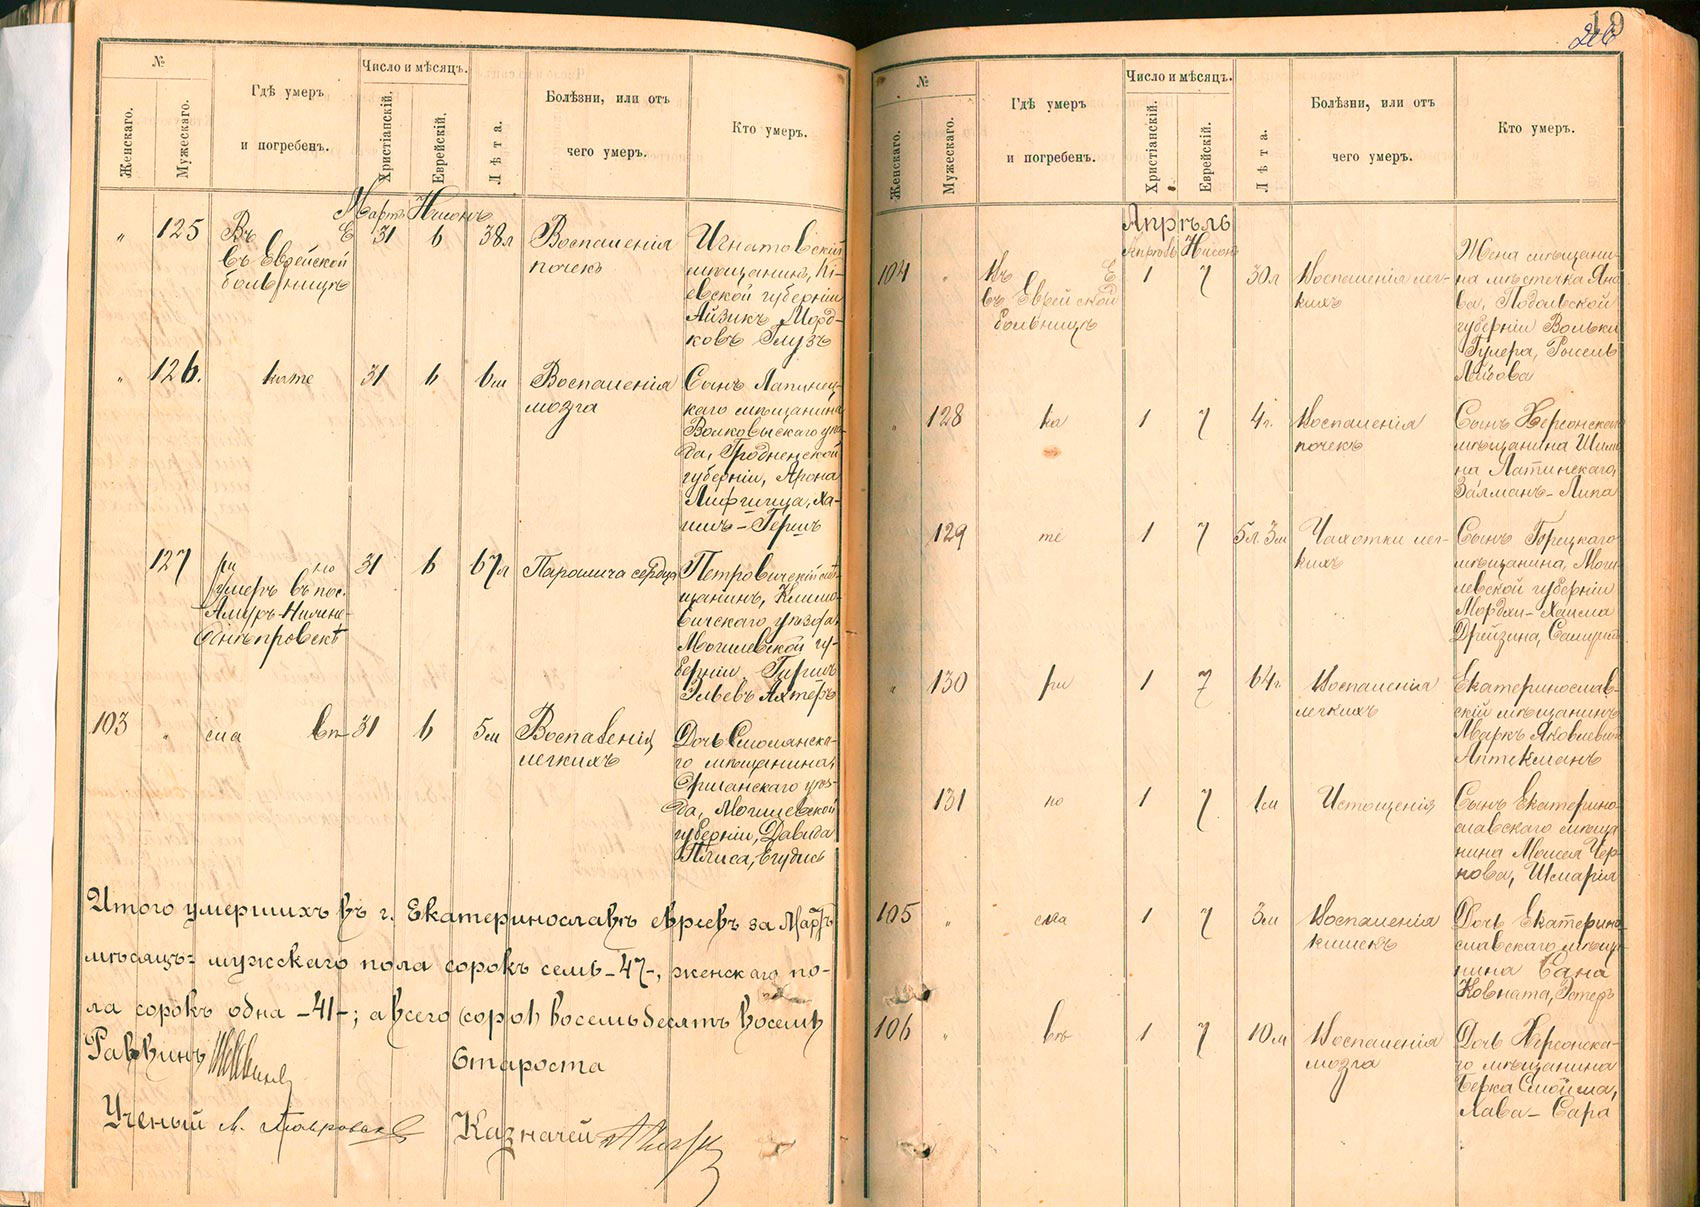 №
Число и мѣсяцъ.
Гдѣ умеръ
и погребенъ.
Женскаго.
Мужескаго.
Христіанскій.
Еврейскій.
Лѣта.
Болѣзни, или отъ
чего умеръ.
Кто умеръ.
Мартъ Нисонъ
" 125 Въ Е 31 6 38л Воспаленія
въ Еврейской
больницѣ
почекъ
Игнатовскій
мѣщанинъ, Кі-
евской губерніи
Айзикъ Морд-
ковъ Глузъ
" 126. кате 31 6 6м Воспаленія
мозга
Сынъ Лапинец-
каго мѣщанина
Волковыскаго уѣз-
да, Гродненской
губерніи, Арона
Лифшица, Ха-
имъ-Гершъ
127 ри но 31 6 67л Паралича сердца
умеръ въ пос.
Амуръ-Нижне-
Днѣпровскѣ
Петровичскій мѣ-
щанинъ, Климо-
вичскаго уѣзда,
Могилевской гу-
берніи, Гиршъ
Эльевъ Ахтеръ
103 " сла вѣ 31 6 5м Воспаленія
легкихъ
Дочь Смолянска-
го мѣщанина,
Оршанскаго уѣз-
да, Могилевской
губерніи, Давида
Плиса, Егудись
Итого умершихъ въ г. Екатеринославѣ евреевъ за Мартъ
мѣсяцъ: мужскаго пола сорокъ семь -47-, женскаго по-
ла сорокъ одна -41-; а всего восемьдесятъ восемь
Раввинъ
Староста
Ученый
Казначей
19
26
№
Число и мѣсяцъ.
Гдѣ умеръ
и погребенъ.
Женскаго.
Мужескаго.
Христіанскій.
Еврейскій.
Лѣта.
Болѣзни, или отъ
чего умеръ.
Кто умеръ.
Апрѣль
Апрѣль Нисонъ
104 " Въ Е 1 7 30л Воспаленія лег-
кихъ
больницѣ
Жена мѣщани-
на мѣстечка Яно-
ва, Подольской
губерніи Вольки
Гулера, Рысель
Лейбова
" 128 ка 1 7 4г. Воспаленія
почекъ
Сынъ Херсонскаго
мѣщанина Шимо-
на Латинскаго,
Залманъ-Липа
129 те 1 7 5л 3м Чахотки лег-
кихъ
Сынъ Горецкаго
мѣщанина, Моги-
левской губерніи
Мордхи-Хаима
Дрейзина, Самуилъ
" 130 ри 1 7 64г. Воспаленія
легкихъ
Екатеринослав-
скій мѣщанинъ
Маркъ Яковлевичъ
Аптекманъ
131 но 1 7 1м Истощенія
Сынъ Екатерино-
славскаго мѣща-
нина Моисея Чер-
нова, Шмарія
105 " сла 1 7 3м Воспаленія
кишекъ
Дочь Екатерино-
славскаго мѣща-
нина
Ковната, Эстеръ
106 " вѣ 1 7 10м Воспаленія
мозга
Дочь Херсонска-
го мѣщанина
Берка Смойма,
Хава-Сара